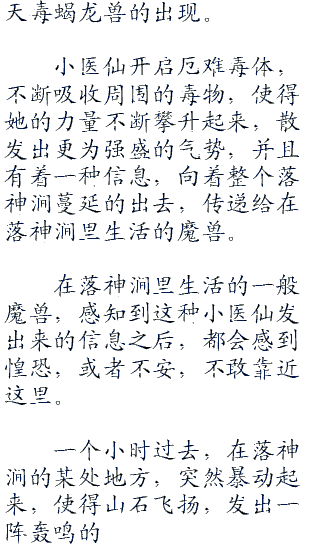 天毒蝎龙兽的出现。
小医仙开启厄难毒体，
不断吸收周围的毒物，使得
她的力量不断攀升起来，散
发出更为强盛的气势，并且
有着一种信息，向着整个落
神涧蔓延的出去，传递给在
落神涧里生活的魔兽。
在落神涧里生活的一般
魔兽，感知到这种小医仙发
出来的信息之后，都会感到
惶恐，或者不安，不敢靠近
这里。
一个小时过去，在落神
涧的某处地方，突然暴动起
来，使得山石飞扬，发出一
阵轰鸣的